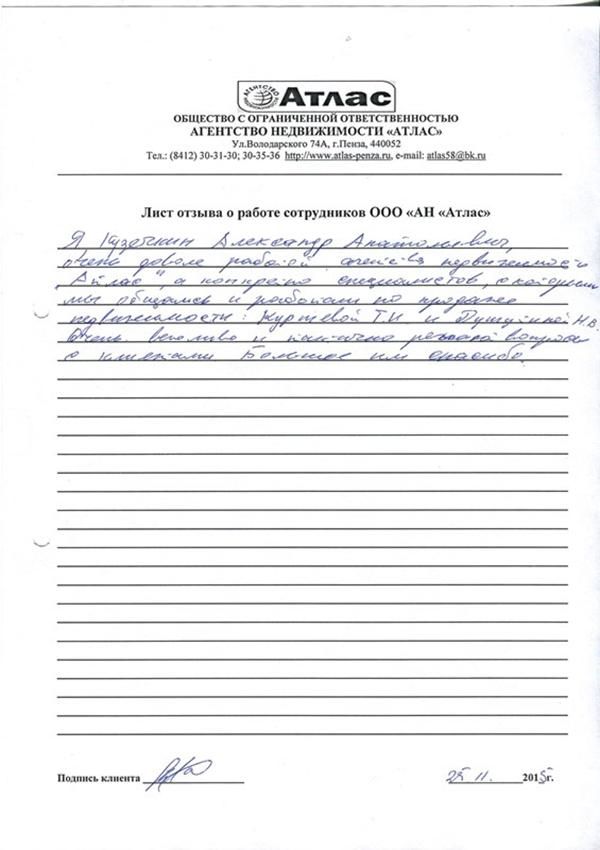 АГЕНТСТВО НЕДВИЖИМОСТИ АТЛАС
ОБЩЕСТВО С ОГРАНИЧЕННОЙ ОТВЕТСТВЕННОСТЬЮ
АГЕНТСТВО НЕДВИЖИМОСТИ «АТЛАС»
Ул.Володарского 74А, г.Пенза, 440052
Тел.: (8412) 30-31-30; 30-35-36 http://www.atlas-penza.ru, e-mail: atlas58@bk.ru
Лист отзыва о работе сотрудников ООО «АН «Атлас»
Я Александр Анатольевич,
очень доволен работой агентства недвижимости
"Атлас", а конкретно специалистов, с которыми
мы общались и работали по продаже
недвижимости: Т.Н и Н.В.
Очень вежливо и тактично решали вопросы
с клиентами Большое им спасибо.
Подпись клиента 25 11. 2015г.